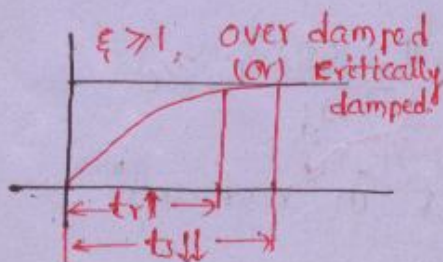 ξ ≥ 1, over damped
(or) critically
damped.
tr↑
ts↓↓